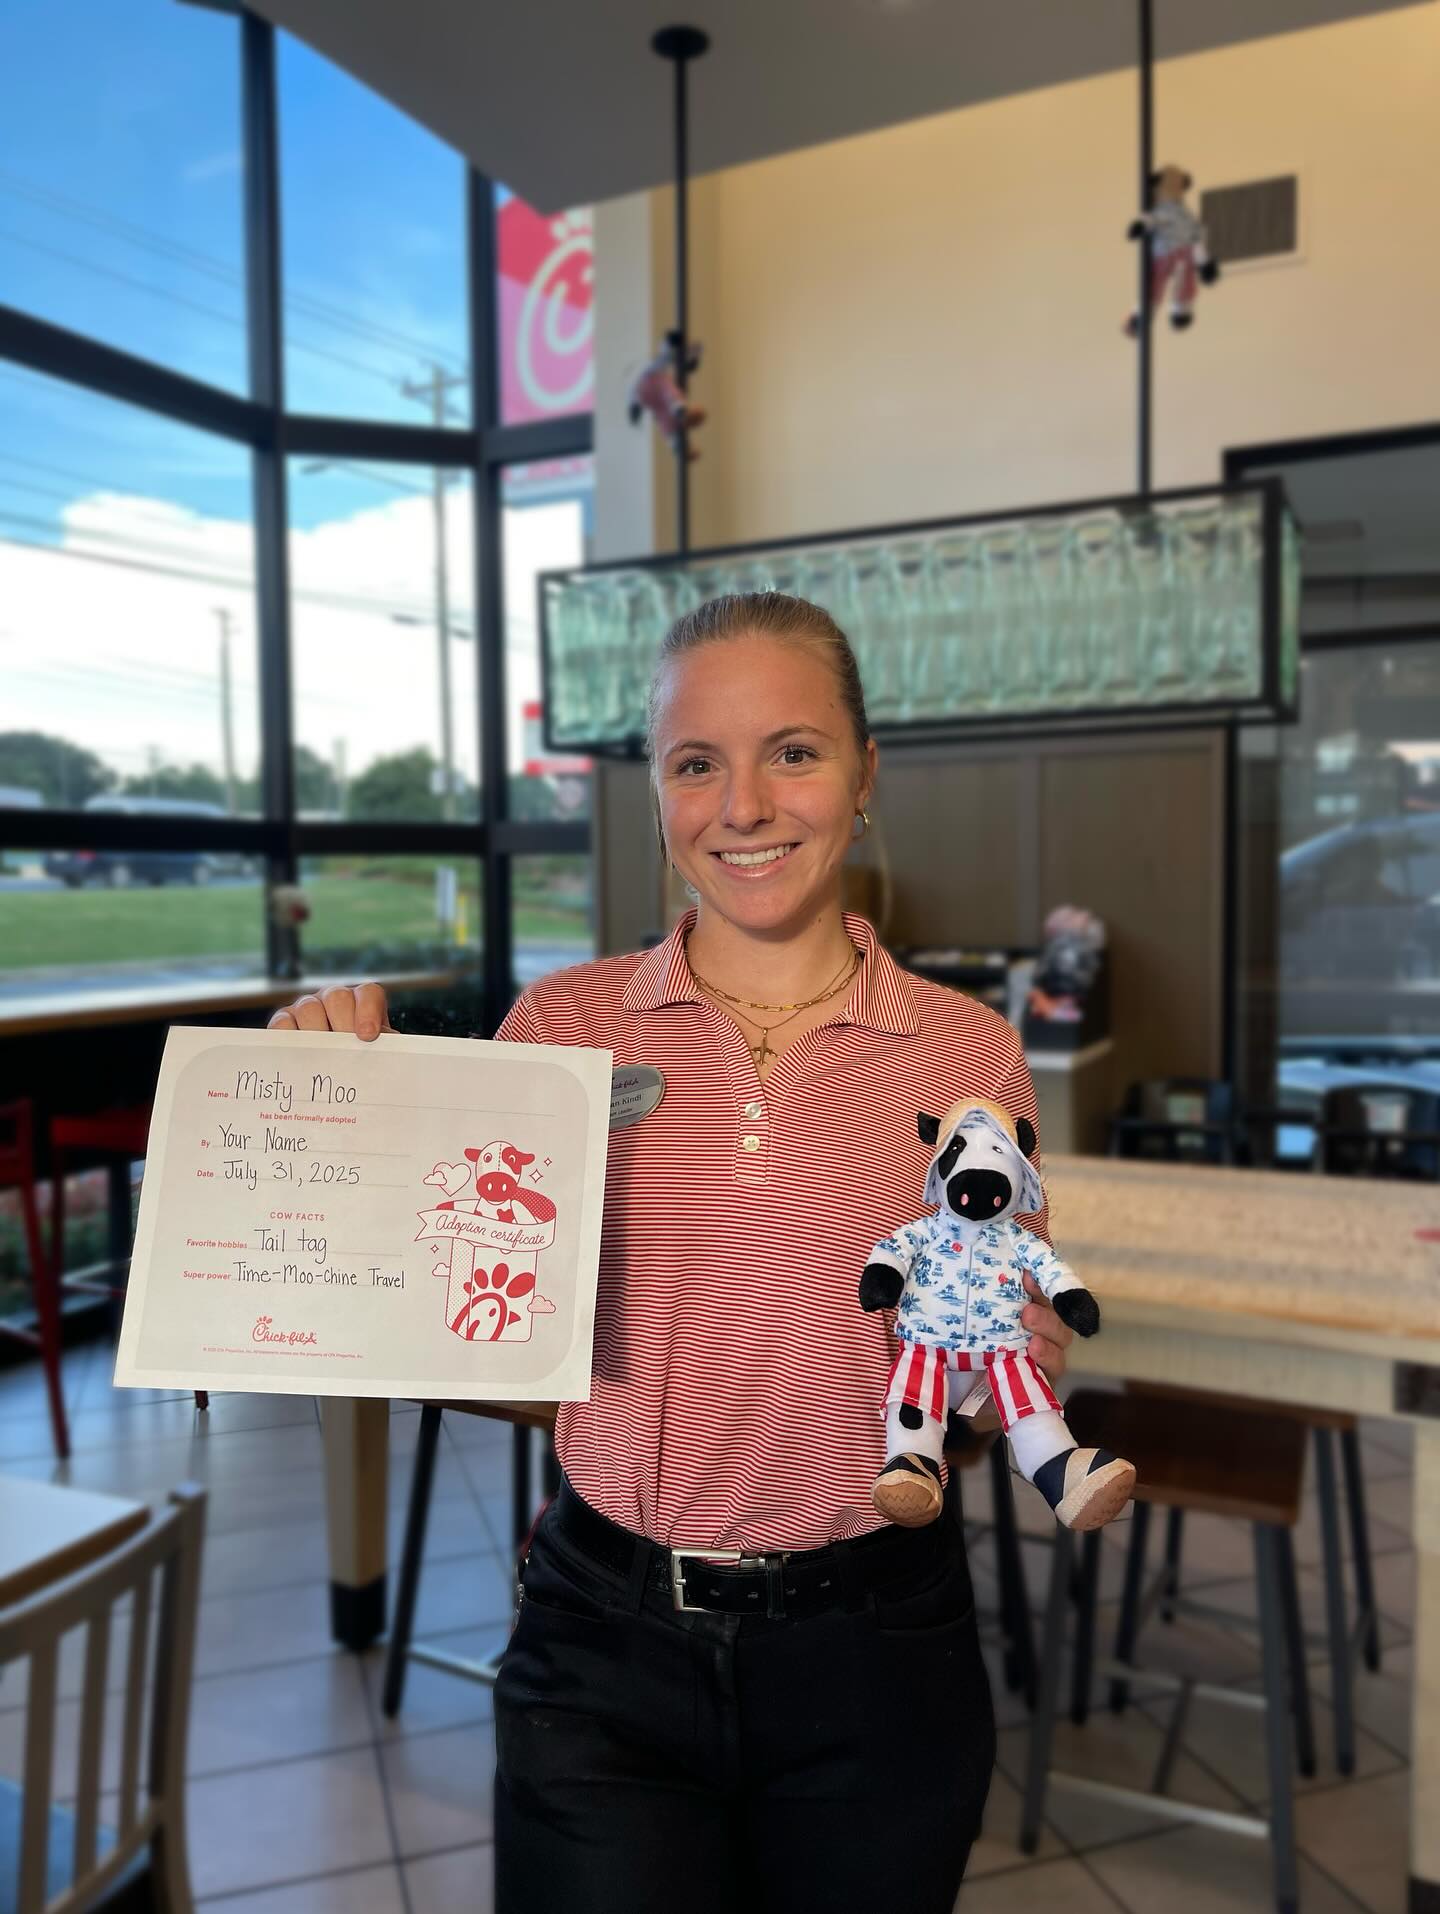 Name Misty Moo
has been formally adopted
By Your Name
Date July 31, 2025
COW FACTS
Favorite hobbies Tail tag
Super power Time-Moo-chine Travel
Adoption certificate
Chick-fil-A
Chick-fil-A
Kindl